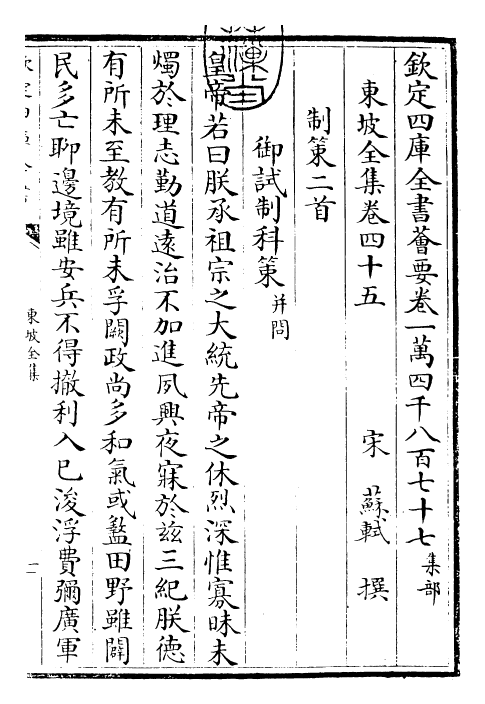 欽定四庫全書薈要卷一萬四千八百七十七集部
東坡全集卷四十五
宋蘇軾撰
制策二首
御試制科策并問
皇帝若曰朕承祖宗之大統先帝之休烈深惟寡昧未
燭於理志勤道遠治不加進夙興夜寐於兹三紀朕德
有所未至教有所未孚闕政尚多和氣或盭田野雖闢
民多亡聊邊境雖安兵不得撤利入已浚浮費彌廣軍
東坡全集
一